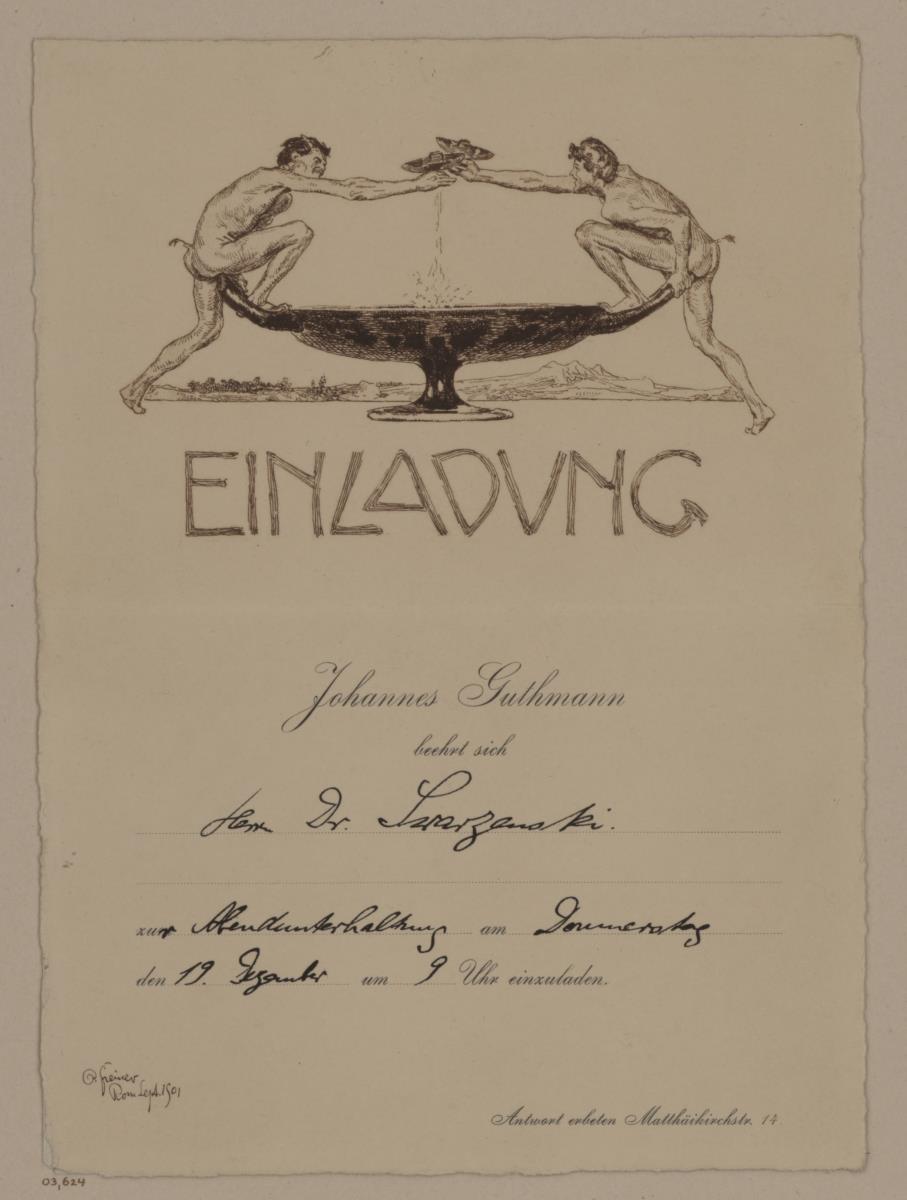 EINLADVNG
Johannes Guthmann
beehrt sich
Herrn Dr. Swarzenski.
zur Abendunterhaltung am Donnerstag
den 19. Dezember um 9 Uhr einzuladen.
O. Greiner
Rom Sept. 1901
Antwort erbeten Matthäikirchstr. 14
03,624